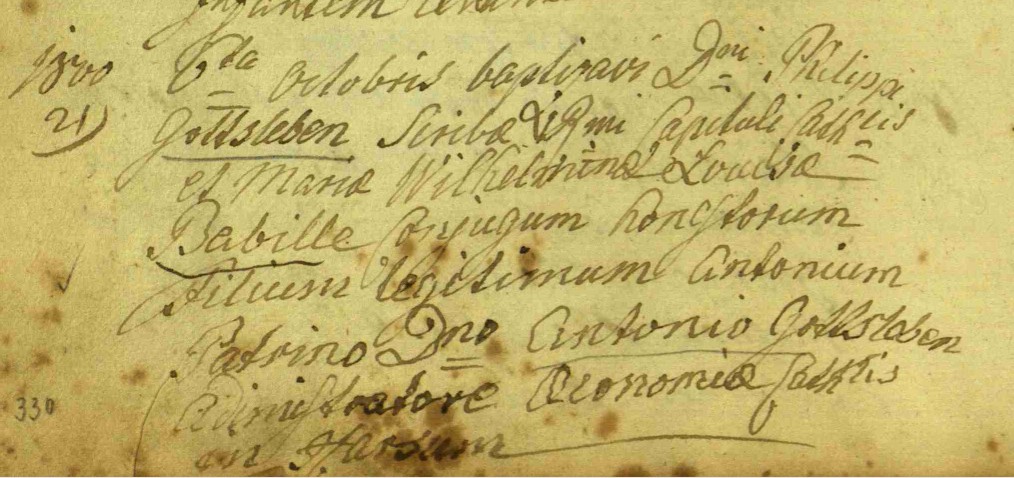 infantem
1800 6ta Octobris baptizavi Dni Philippi
21) Gottsleben Scribæ Rmi Capituli Cathlis
et Mariæ Wilhelminæ Louisæ
Babille Conjugum honestorum
filium legitimum Antonium
Patrino Dno Antonio Gottsleben
Administratore Œconomiæ Cathlis
330 in Harsum